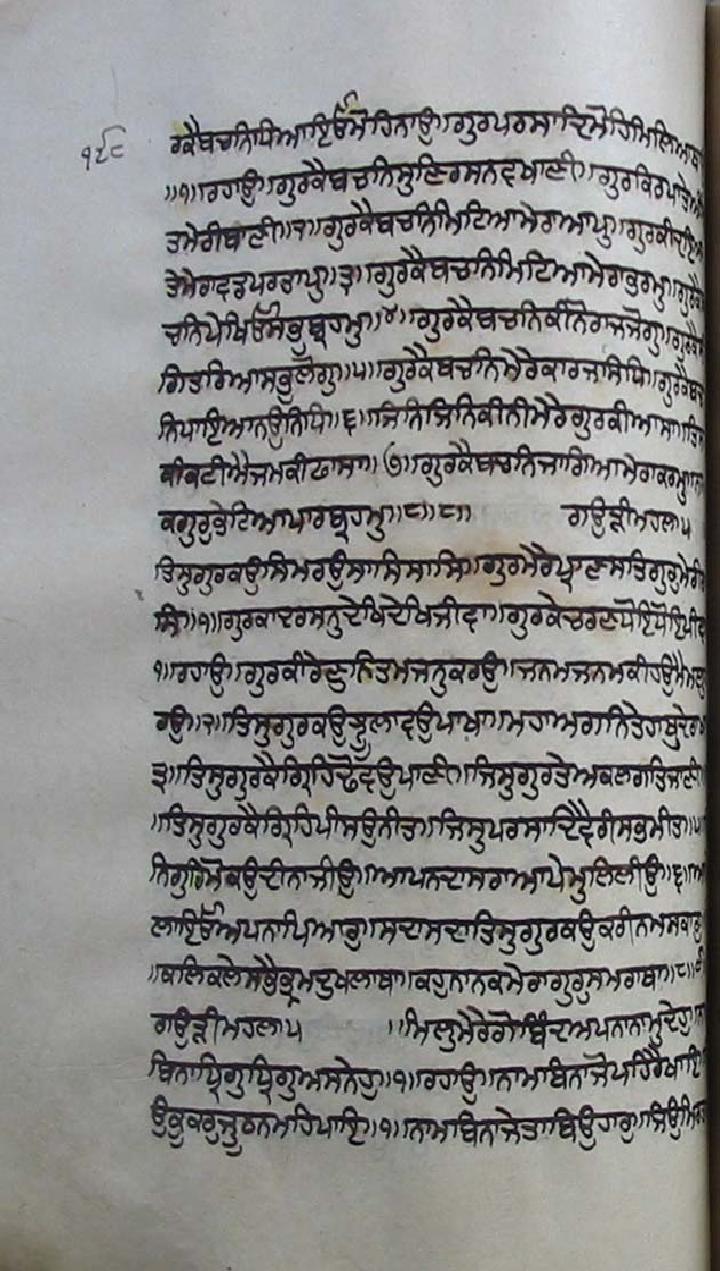 ੧੬੯
ਰਕੈਬਚਨਿਧਿਆਇਓਮੋਹਿਨਾਉ॥ਗੁਰਪਰਸਾਦਿਮੋਹਿਮਿਲਿਆ
॥੧॥ਰਹਾਉ॥ਗੁਰਕੈਬਚਨਿਸੁਣਿਰਸਨਵਖਾਣੀ॥ਗੁਰਕਿਰਪਾਤੇਅੰ
ਤਮੇਰੀਬਾਣੀ॥੨॥ਗੁਰਕੈਬਚਨਿਮਿਟਿਆਮੇਰਾਆਪੁ॥ਗੁਰਕੀਦਇਆ
ਤੇਮੇਰਾਵਡਪਰਤਾਪੁ॥੩॥ਗੁਰਕੈਬਚਨਿਮਿਟਿਆਮੇਰਾਭਰਮੁ॥ਗੁਰਕੈ
ਚਨਿਪੇਖਿਓਸਭੁਬ੍ਰਹਮੁ॥੪॥ਗੁਰਕੈਬਚਨਿਕੀਨੋਰਾਜਜੋਗੁ॥ਗੁਰਕੈਸੰ
ਗਿਤਰਿਆਸਭੁਲੋਗੁ॥੫॥ਗੁਰਕੈਬਚਨਿਮੇਰੇਕਾਰਜਸਿਧਿ॥ਗੁਰਕੈਬਚ
ਨਿਪਾਇਆਨਉਨਿਧਿ॥੬॥ਜਿਨਿਜਿਨਿਕੀਨੀਮੇਰੇਗੁਰਕੀਆਸਾ॥ਤਿਸ
ਕੀਕਟੀਐਜਮਕੀਫਾਸਾ॥੭॥ਗੁਰਕੈਬਚਨਿਜਾਗਿਆਮੇਰਾਕਰਮੁ॥ਨਾਨ
ਕਗੁਰੁਭੇਟਿਆਪਾਰਬ੍ਰਹਮੁ॥੮॥੮॥ ਗਉੜੀਮਹਲਾ੫
ਤਿਸੁਗੁਰਕਉਸਿਮਰਉਸਾਸਿਸਾਸਿ॥ਗੁਰਮੇਰੇਪ੍ਰਾਣਸਤਿਗੁਰੁਮੇਰੀਰਾ
ਸਿ॥੧॥ਗੁਰਕਾਦਰਸਨੁਦੇਖਿਦੇਖਿਜੀਵਾ॥ਗੁਰਕੇਚਰਣਧੋਇਧੋਇਪੀਵਾ
੧॥ਰਹਾਉ॥ਗੁਰਕੀਰੇਣੁਨਿਤਮਜਨੁਕਰਉ॥ਜਨਮਜਨਮਕੀਹਉਮੈਮਲੁ
ਰਉ॥੨॥ਤਿਸੁਗੁਰਕਉਝੂਲਾਵਉਪਾਖਾ॥ਮਹਾਅਗਨਿਤੇਹਾਥੁਦੇਰਾਖਾ
੩॥ਤਿਸੁਗੁਰਕੈਗ੍ਰਿਹਿਢੋਵਉਪਾਣੀ॥ਜਿਸੁਗੁਰਤੇਅਕਲਗਤਿਜਾਣੀ
॥ਤਿਸੁਗੁਰਕੈਗ੍ਰਿਹਿਪੀਸਉਨੀਤ॥ਜਿਸੁਪਰਸਾਦਿਵੈਰੀਸਭਮੀਤ॥੫
ਨਿਗੁਰਿਮੋਕਉਦੀਨਾਜੀਉ॥ਆਪਨਦਾਸਰਾਆਪੇਮੁਲਿਲੀਉ॥੬॥ਆ
ਲਾਇਓਅਪਨਾਪਿਆਰੁ॥ਸਦਾਸਦਾਤਿਸੁਗੁਰਕਉਕਰੀਨਮਸਕਾਰੁ
॥ਕਲਿਕਲੇਸਭੈਭ੍ਰਮਦੁਖਲਾਥਾ॥ਕਹੁਨਾਨਕਮੇਰਾਗੁਰੁਸਮਰਾਥਾ॥੮॥੯
ਗਉੜੀਮਹਲਾ੫ ॥ਮਿਲੁਮੇਰੇਗੋਬਿੰਦਅਪਨਾਨਾਮੁਦੇਹੁ॥ਨਾ
ਬਿਨਾਧ੍ਰਿਗੁਧ੍ਰਿਗੁਅਸਨੇਹੁ॥੧॥ਰਹਾਉ॥ਨਾਮਬਿਨਾਜੋਪਹਿਰੈਖਾਇ
ਉਕੂਕਰੁਜੂਠਨਮਹਿਪਾਇ॥੧॥ਨਾਮਬਿਨਾਜੇਤਾਬਿਉਹਾਰੁ॥ਜਿਉਮਿ